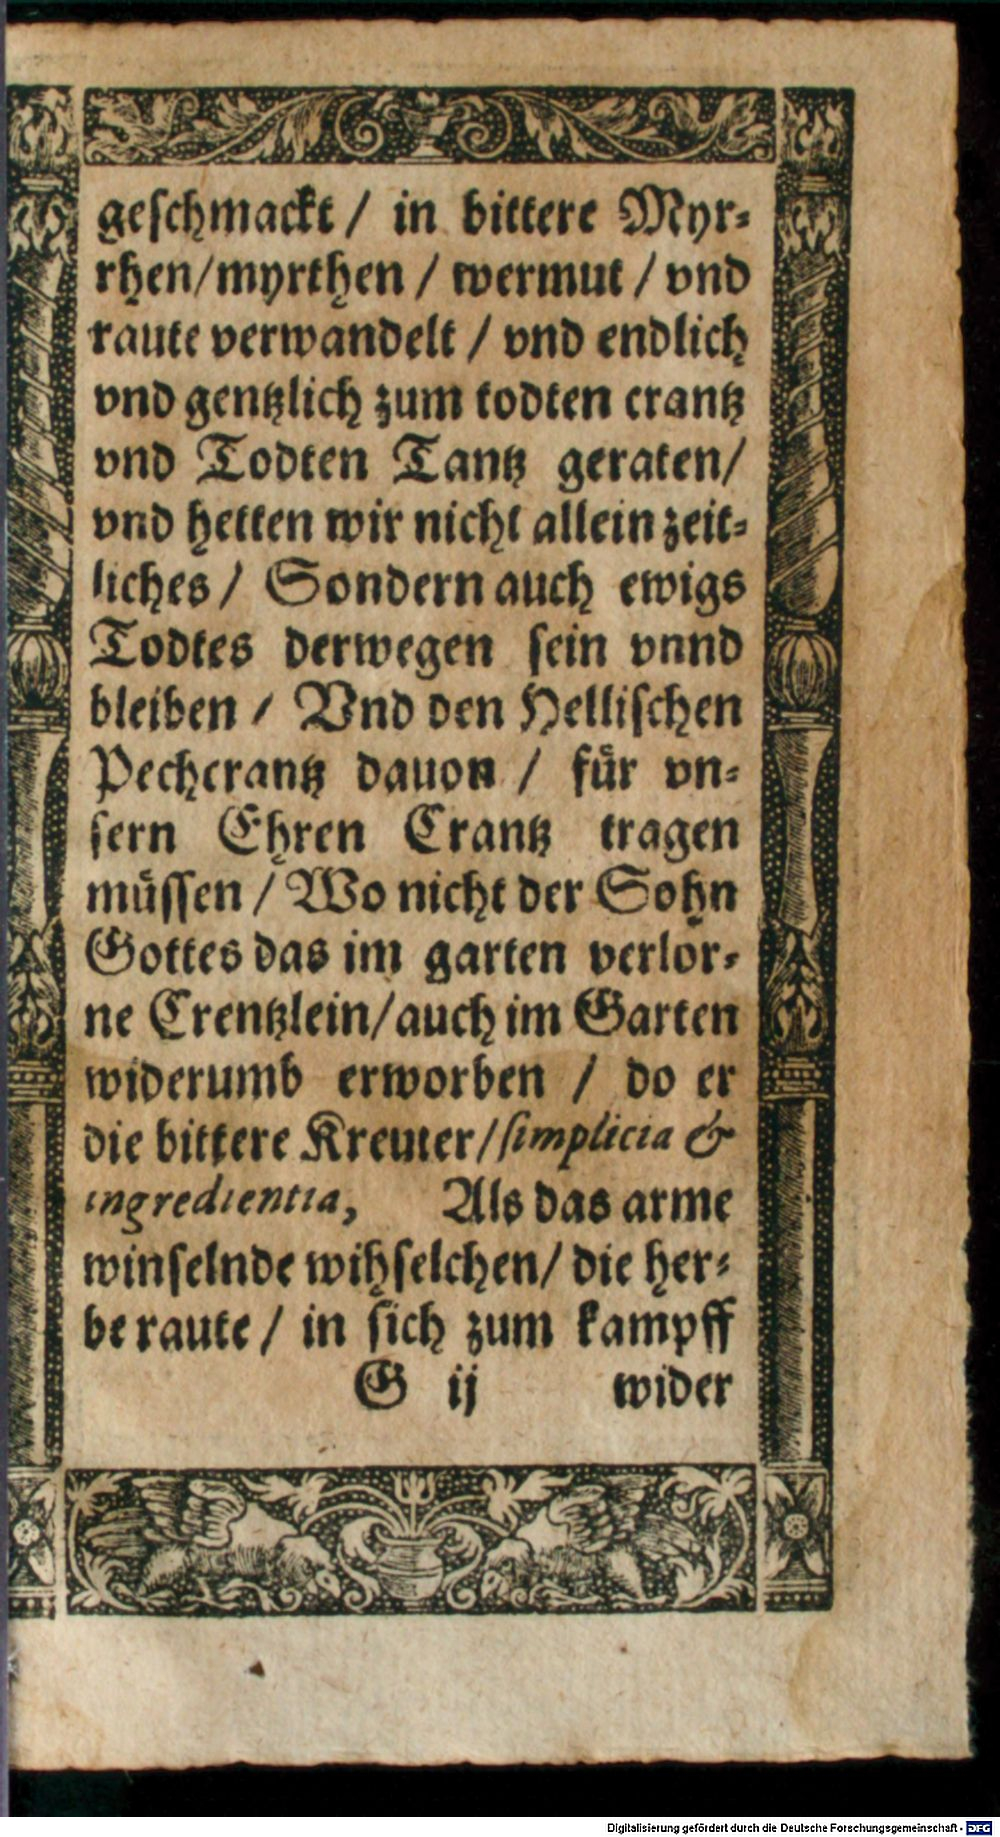 geschmackt / in bittere Myr⸗
rhen/myrthen / wermut / vnd
raute verwandelt / vnd endlich
vnd gentzlich zum todten crantz
vnd Todten Tantz geraten/
vnd hetten wir nicht allein zeit⸗
liches / Sondern auch ewigs
Todtes derwegen sein vnnd
bleiben / Vnd den Hellischen
Pechcrantz dauon / für vn⸗
sern Ehren Crantz tragen
müssen / Wo nicht der Sohn
Gottes das im garten verlor⸗
ne Crentzlein/auch im Garten
widerumb erworben / do er
die bittere Kreuter/simplicia &
ingredientia, Als das arme
winselnde wihselchen/ die her⸗
be raute / in sich zum kampff
G ij wider
Digitalisierung gefördert durch die Deutsche Forschungsgemeinschaft - DFG